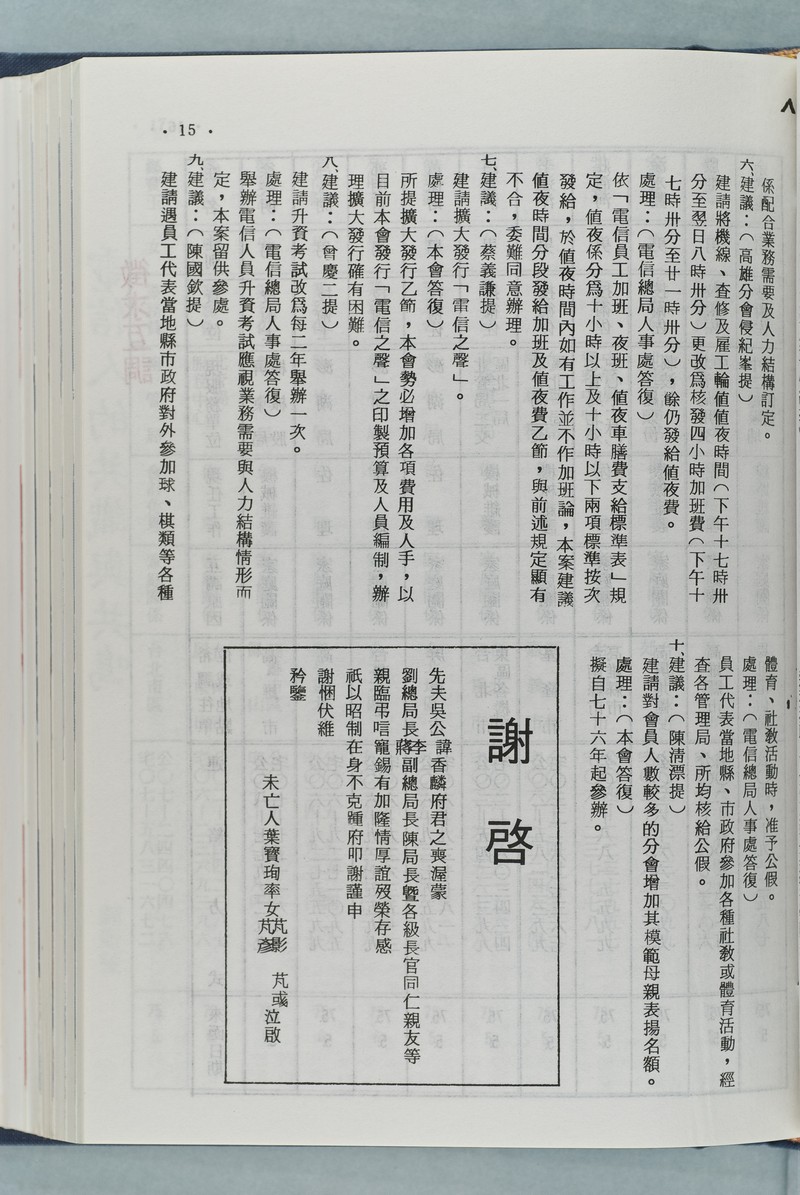 • 15 •
係配合業務需要及人力結構訂定。
六、建議：（高雄分會侵紀峯提）
建請將機線、查修及雇工輪值值夜時間（下午十七時卅
分至翌日八時卅分）更改為核發四小時加班費（下午十
七時卅分至廿一時卅分），餘仍發給值夜費。
處理：（電信總局人事處答復）
依「電信員工加班、夜班、值夜車膳費支給標準表」規
定，值夜係分為十小時以上及十小時以下兩項標準按次
發給，於值夜時間內如有工作並不作加班論，本案建議
值夜時間分段發給加班及值夜費乙節，與前述規定顯有
不合，委難同意辦理。
七、建議：（蔡義謙提）
建請擴大發行「電信之聲」。
處理：（本會答復）
所提擴大發行乙節，本會勢必增加各項費用及人手，以
目前本會發行「電信之聲」之印製預算及人員編制，辦
理擴大發行確有困難。
八、建議：（曾慶二提）
建請升資考試改為每二年舉辦一次。
處理：（電信總局人事處答復）
舉辦電信人員升資考試應視業務需要與人力結構情形而
定，本案留供參處。
九、建議：（陳國欽提）
建請遇員工代表當地縣市政府對外參加球、棋類等各種
體育、社教活動時，准予公假。
處理：（電信總局人事處答復）
員工代表當地縣、市政府參加各種社教或體育活動，經
查各管理局、所均核給公假。
十、建議：（陳清漂提）
建請對會員人數較多的分會增加其模範母親表揚名額。
處理：（本會答復）
擬自七十六年起參辦。
謝啓
先夫吳公諱香麟府君之喪渥蒙
劉總局長李蔣副總局長陳局長暨各級長官同仁親友等
親臨弔唁寵錫有加隆情厚誼歿榮存感
祇以昭制在身不克踵府叩謝謹申
謝悃伏維
矜鑒
未亡人葉寶珣率女芃影芃彥 芃彧泣啟